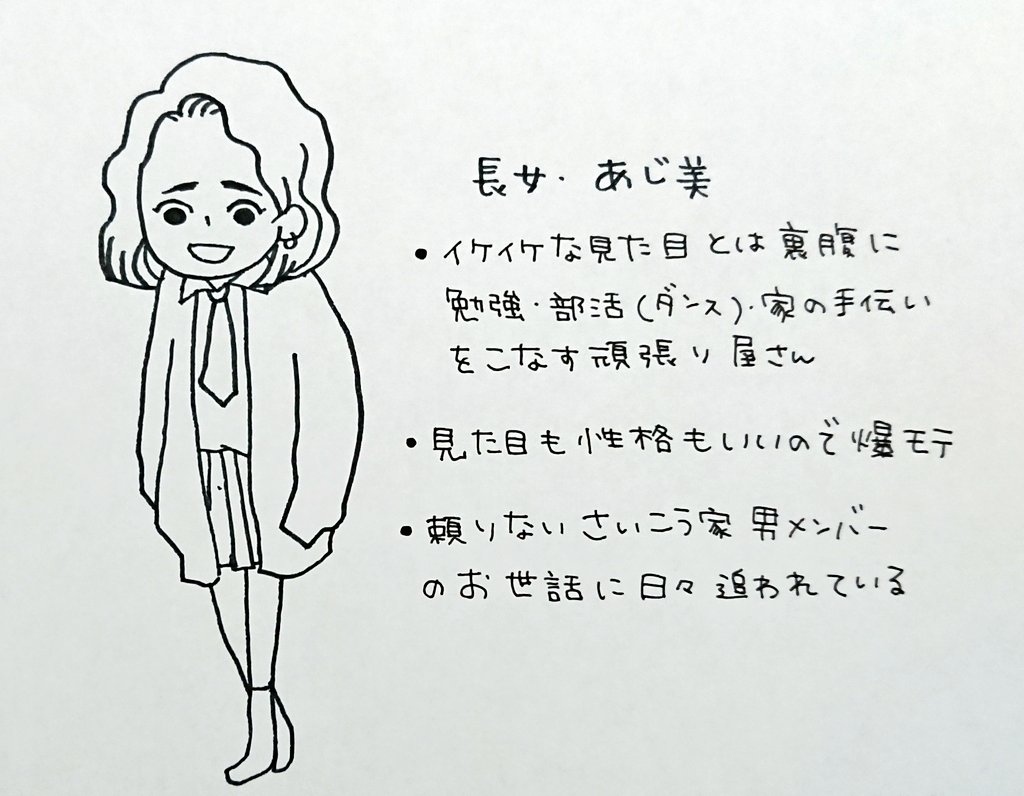 長女・あじ美
・イケイケな見た目とは裏腹に
勉強・部活(ダンス)・家の手伝い
をこなす頑張り屋さん
・見た目も性格もいいので爆モテ
・頼りないさいこう家男メンバー
のお世話に日々追われている